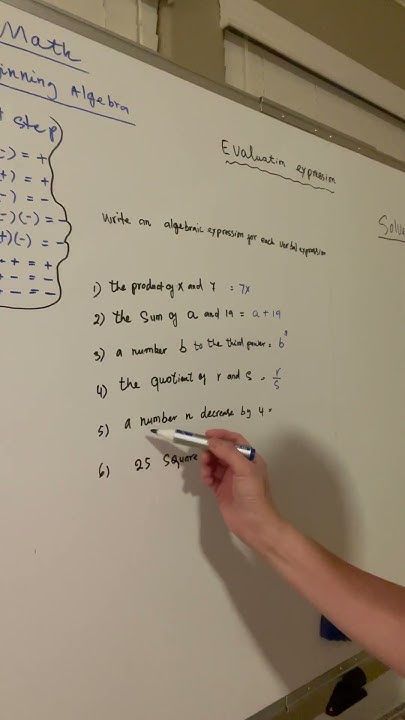 Math
inning Algebra
step
-) = +
+) = +
-) = -
-)(-) = -
+)(-) = -
+ + = +
- - = -
Evaluatin expression
Write an algebraic expression for each verbal expression
1) the product of x and 7 = 7x
2) the Sum of a and 19 = a + 19
3) a number b to the third power = b
4) the quotient of r and s = r/s
5) a number n decrease by 4 =
6) 25 Square
Solu